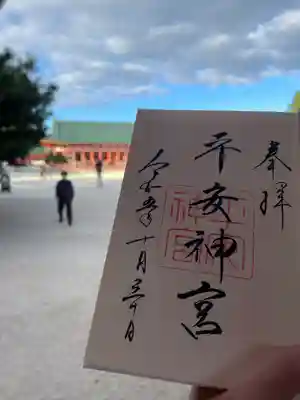 奉拝
平安神宮
令和五年十月三十日